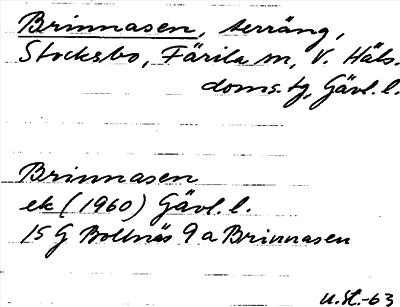 Brinnasen, terräng,
Stocksbo, Färila sn, V. Häls.
doms.tg, Gävl.l.
Brinnasen
ek (1960) Gävl.l.
15 G Bollnäs 9 a Brinnasen
U.St.-63